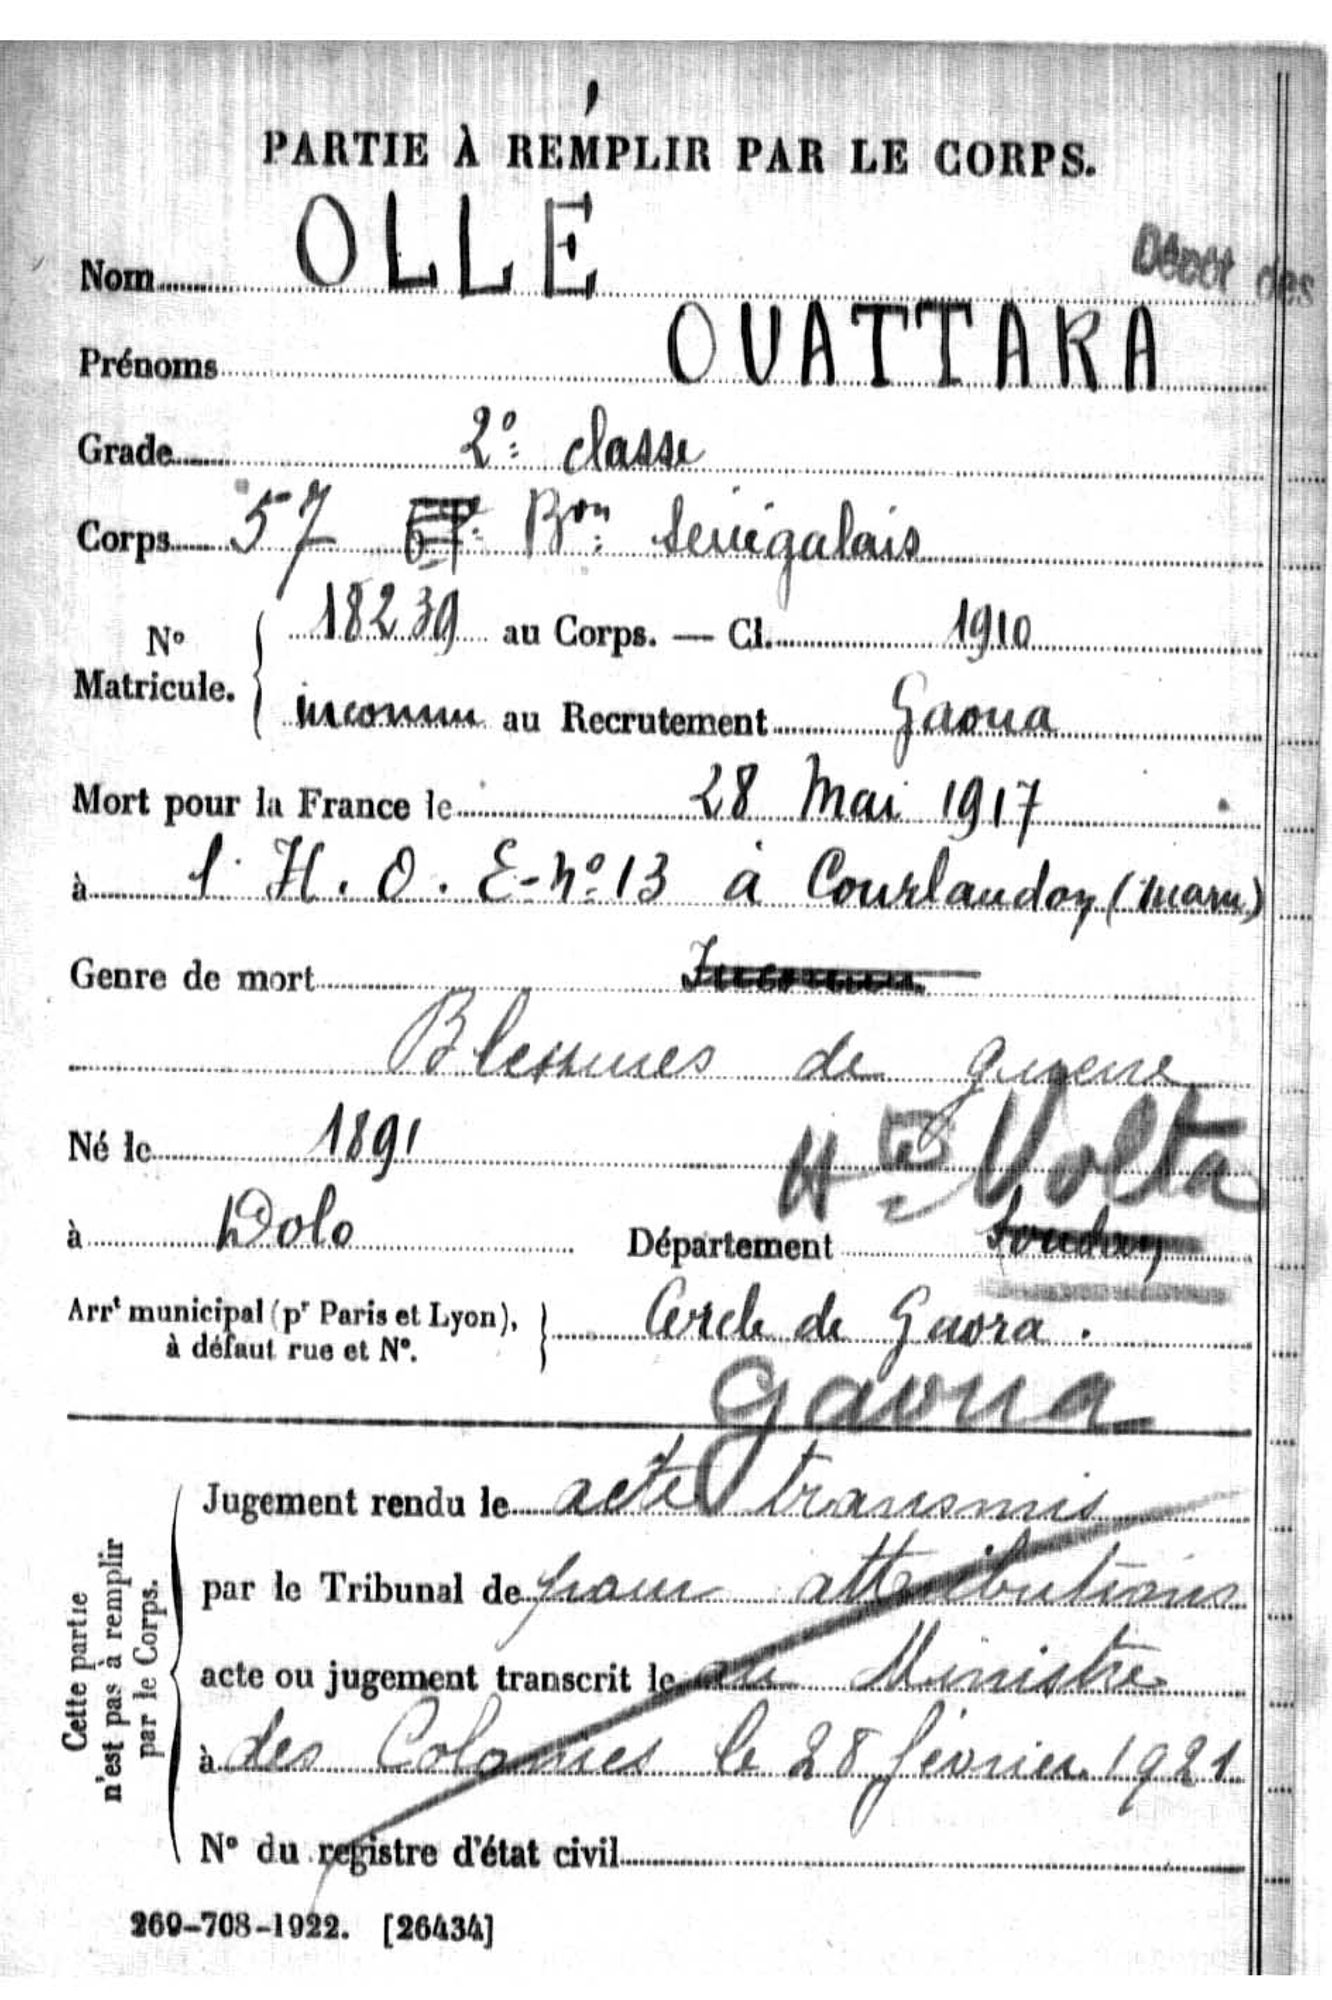 PARTIE À REMPLIR PAR LE CORPS.
Nom OLLÉ
Dépôt des
Prénoms OUATTARA
Grade 2e classe
Corps 57 Bon Sénégalais
No Matricule. 18239 au Corps. — Cl. 1910
inconnu au Recrutement Gaoua
Mort pour la France le 28 Mai 1917
à l'H.O.E-no 13 à Courlandon (Marne)
Genre de mort Inconnu
Blessures de guerre
Né le 1891 Hte Volta
à Dolo Département Soudan
Arrt municipal (pr Paris et Lyon), à défaut rue et No. Cercle de Gaora.
Gaoua
Cette partie n'est pas à remplir par le Corps.
Jugement rendu le acte transmis
par le Tribunal de pour attributions
acte ou jugement transcrit le au Ministre
à des Colonies le 28 février 1921
No du registre d'état civil
269-708-1922. [26434]